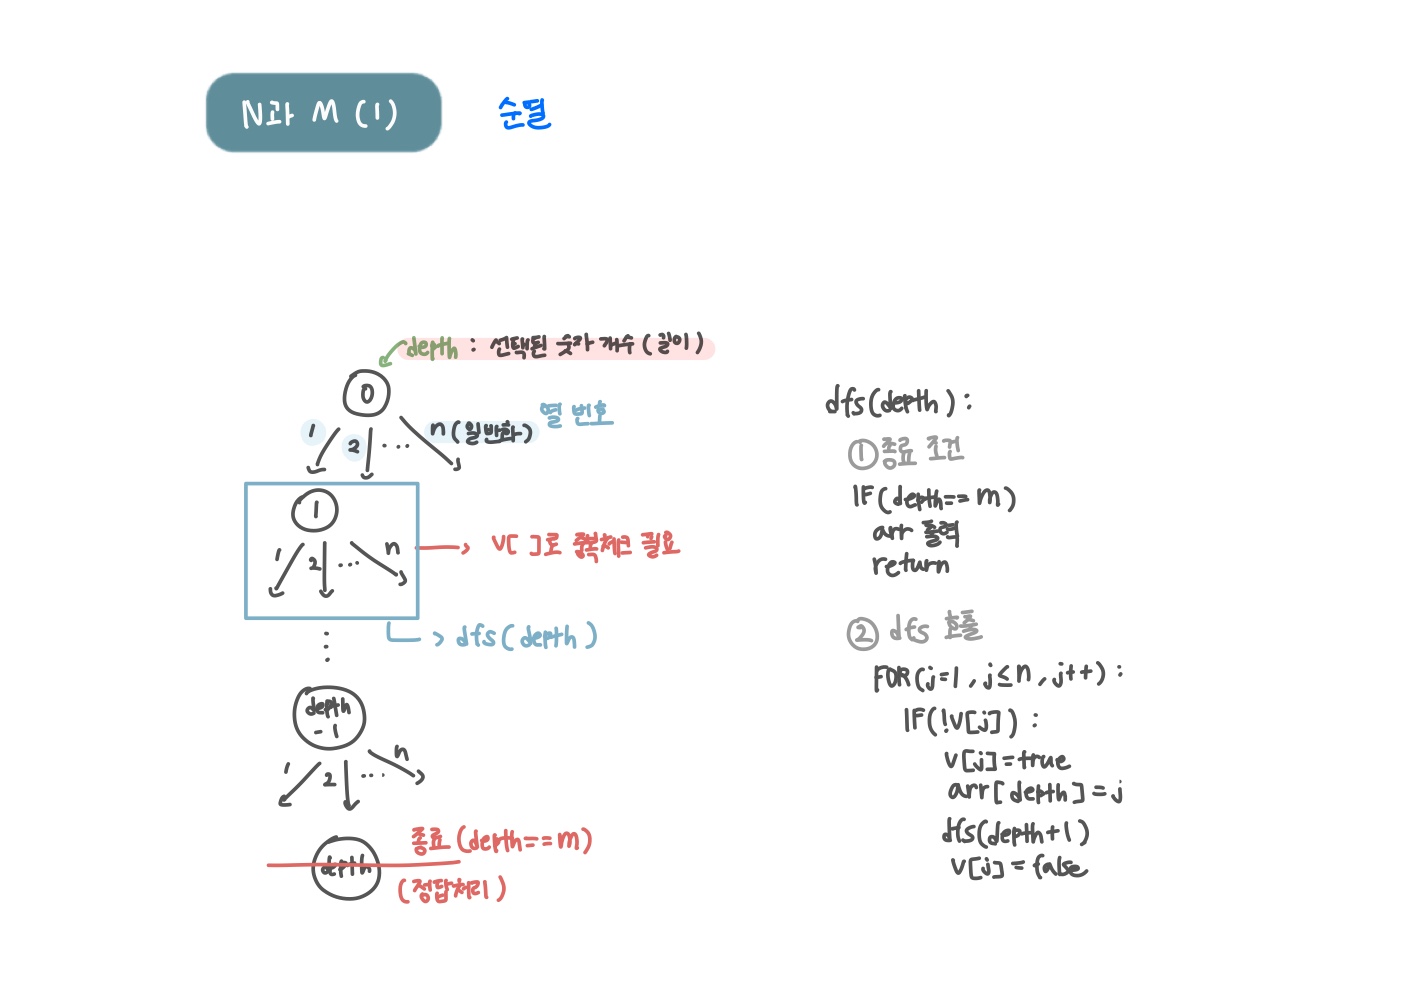 N과 M (1)
순열
depth : 선택된 숫자 개수 (길이)
0
열 번호
1 2 ... n (일반화)
1
1 2 ... n
v[ ]로 중복체크 필요
dfs(depth)
depth
-1
1 2 ... n
종료 (depth==m)
depth
(정답처리)
dfs(depth):
① 종료 조건
IF(depth==m)
arr 출력
return
② dfs 호출
FOR(j=1, j≤n, j++):
IF(!v[j]):
v[j]=true
arr[depth]=j
dfs(depth+1)
v[j]=false